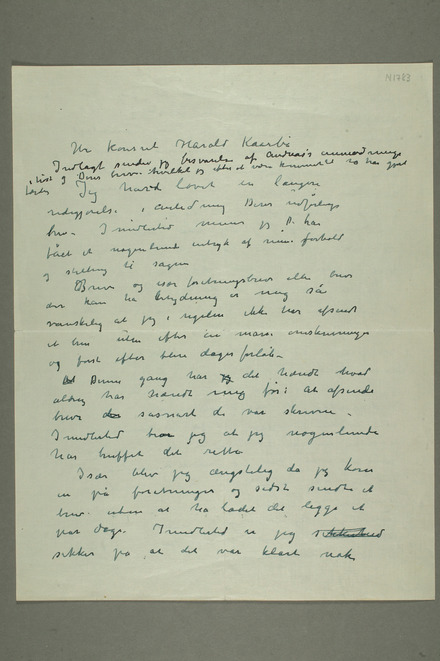 N1783
Hr Konsul Harald Kaarbø
Indlagt sender jeg besvarelse af Andreas's anmodninger
i sidste Deres brev.
Jeg havde lovet en længere
redegjørelse i anledning Deres udførlige
brev. Imidlertid mener jeg De har
fået et nogenlunde indtryk af min forhold
og stilling til sagen
Breve og især forretningsbreve eller breve
der kan ha betydning er mig så
vanskelig at jeg i regelen ikke har afsendt
et brev uden efter en masse omskrivninger
og først efter flere dages forløb.
Denne gang har det hændt hvad
aldrig har hændt mig før: at afsende
breve såsnart de var skrevne.
Imidlertid tror jeg at jeg nogenlunde
har truffet det rette
Især blev jeg ængstelig da jeg kom
ind på forretninger og sidst sendte et
brev uden at ha ladet det ligge et
par dage. Imidlertid er jeg
sikker på at det var klart nok